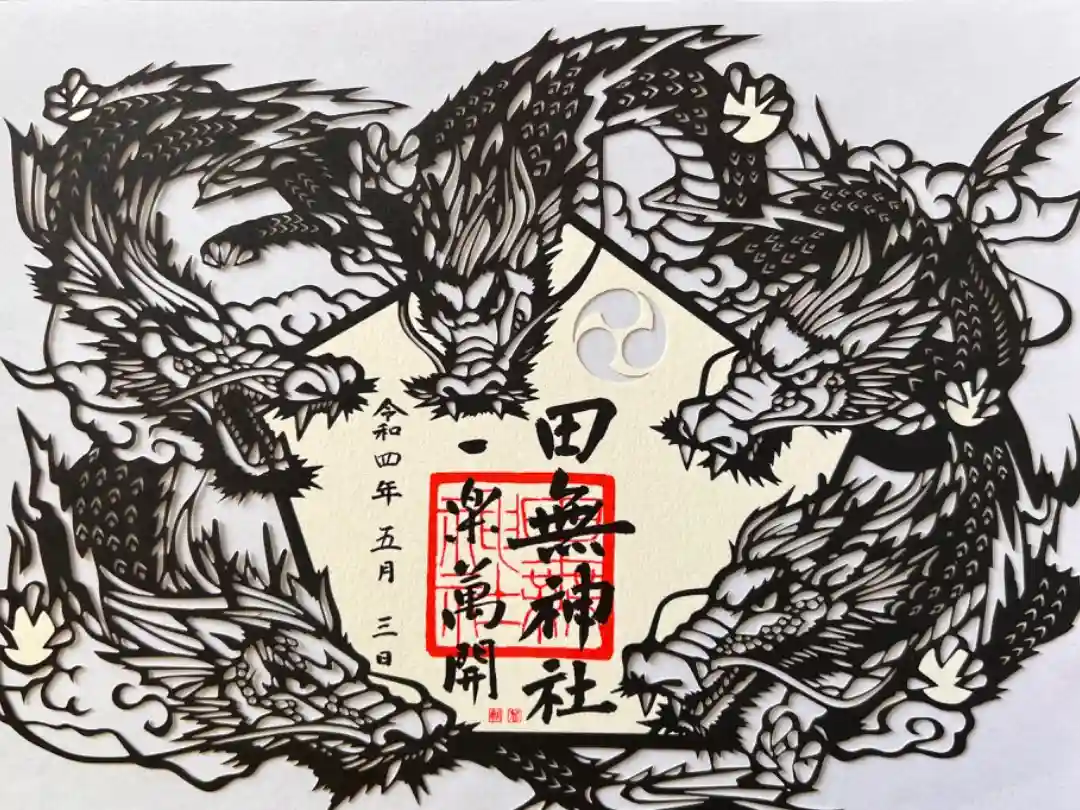 田無神社
一楽萬開
令和四年 五月 三日